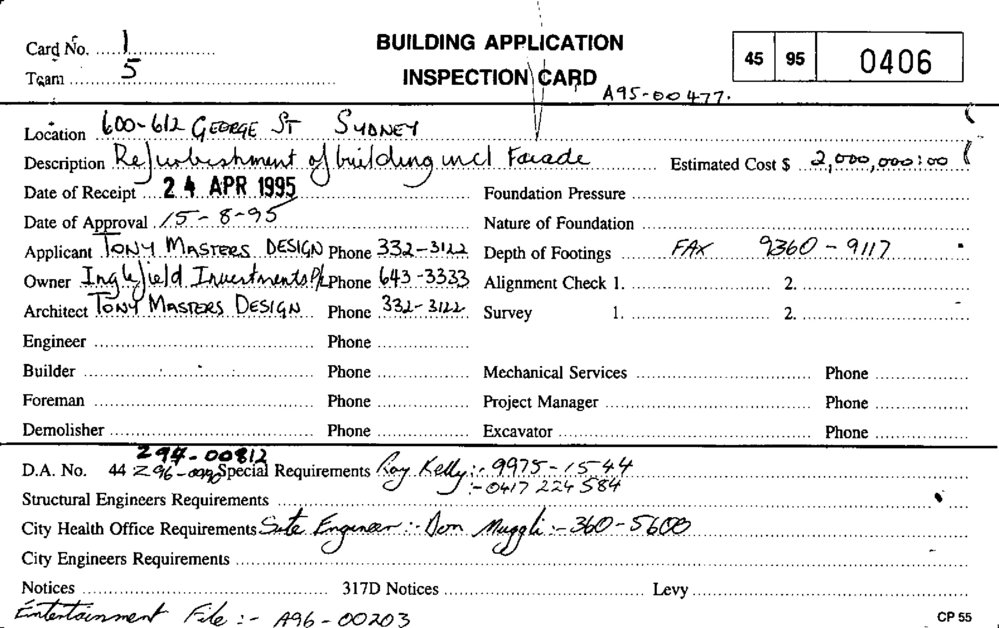 Card No. 1
BUILDING APPLICATION
45 95 0406
Team 5
INSPECTION CARD
A95-00477.
Location 600-612 GEORGE ST SYDNEY
Description Refurbishment of building incl Facade Estimated Cost $ 2,000,000:00
Date of Receipt 24 APR 1995 Foundation Pressure
Date of Approval 15-8-95 Nature of Foundation
Applicant TONY MASTERS DESIGN Phone 332-3122 Depth of Footings FAX 9360-9117
Owner Inglefield Investments P/L Phone 643-3333 Alignment Check 1. 2.
Architect TONY MASTERS DESIGN Phone 332-3122 Survey 1. 2.
Engineer Phone
Builder Phone Mechanical Services Phone
Foreman Phone Project Manager Phone
Demolisher Phone Excavator Phone
Z94-00812
D.A. No. 44 Z96- Special Requirements Roy Kelly:- 9975-1544
:-0417 224 584
Structural Engineers Requirements
City Health Office Requirements Site Engineer:- Don Muggli:- 360-5600
City Engineers Requirements
Notices 317D Notices Levy
Entertainment File:- A96-00203
CP 55